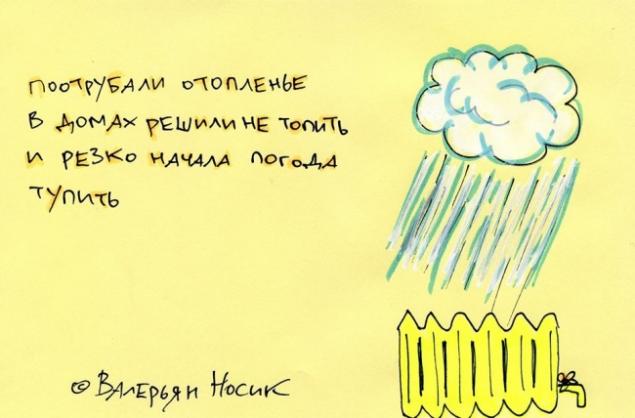 поотрубали отопленье
в домах решили не топить
и резко начала погода
тупить
© Валерьян Носик